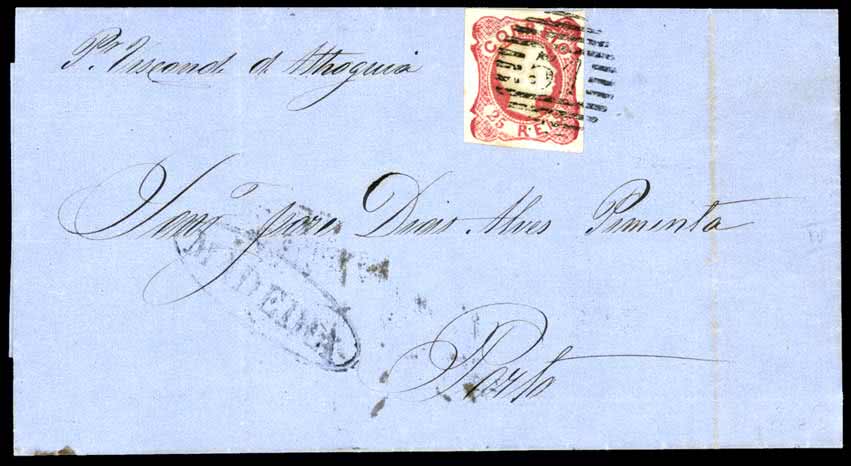 Pr Visconde d'Athoguia
CORREIO
25 REIS
Senr. José Dias Alves Pimenta
MADEIRA
Porto